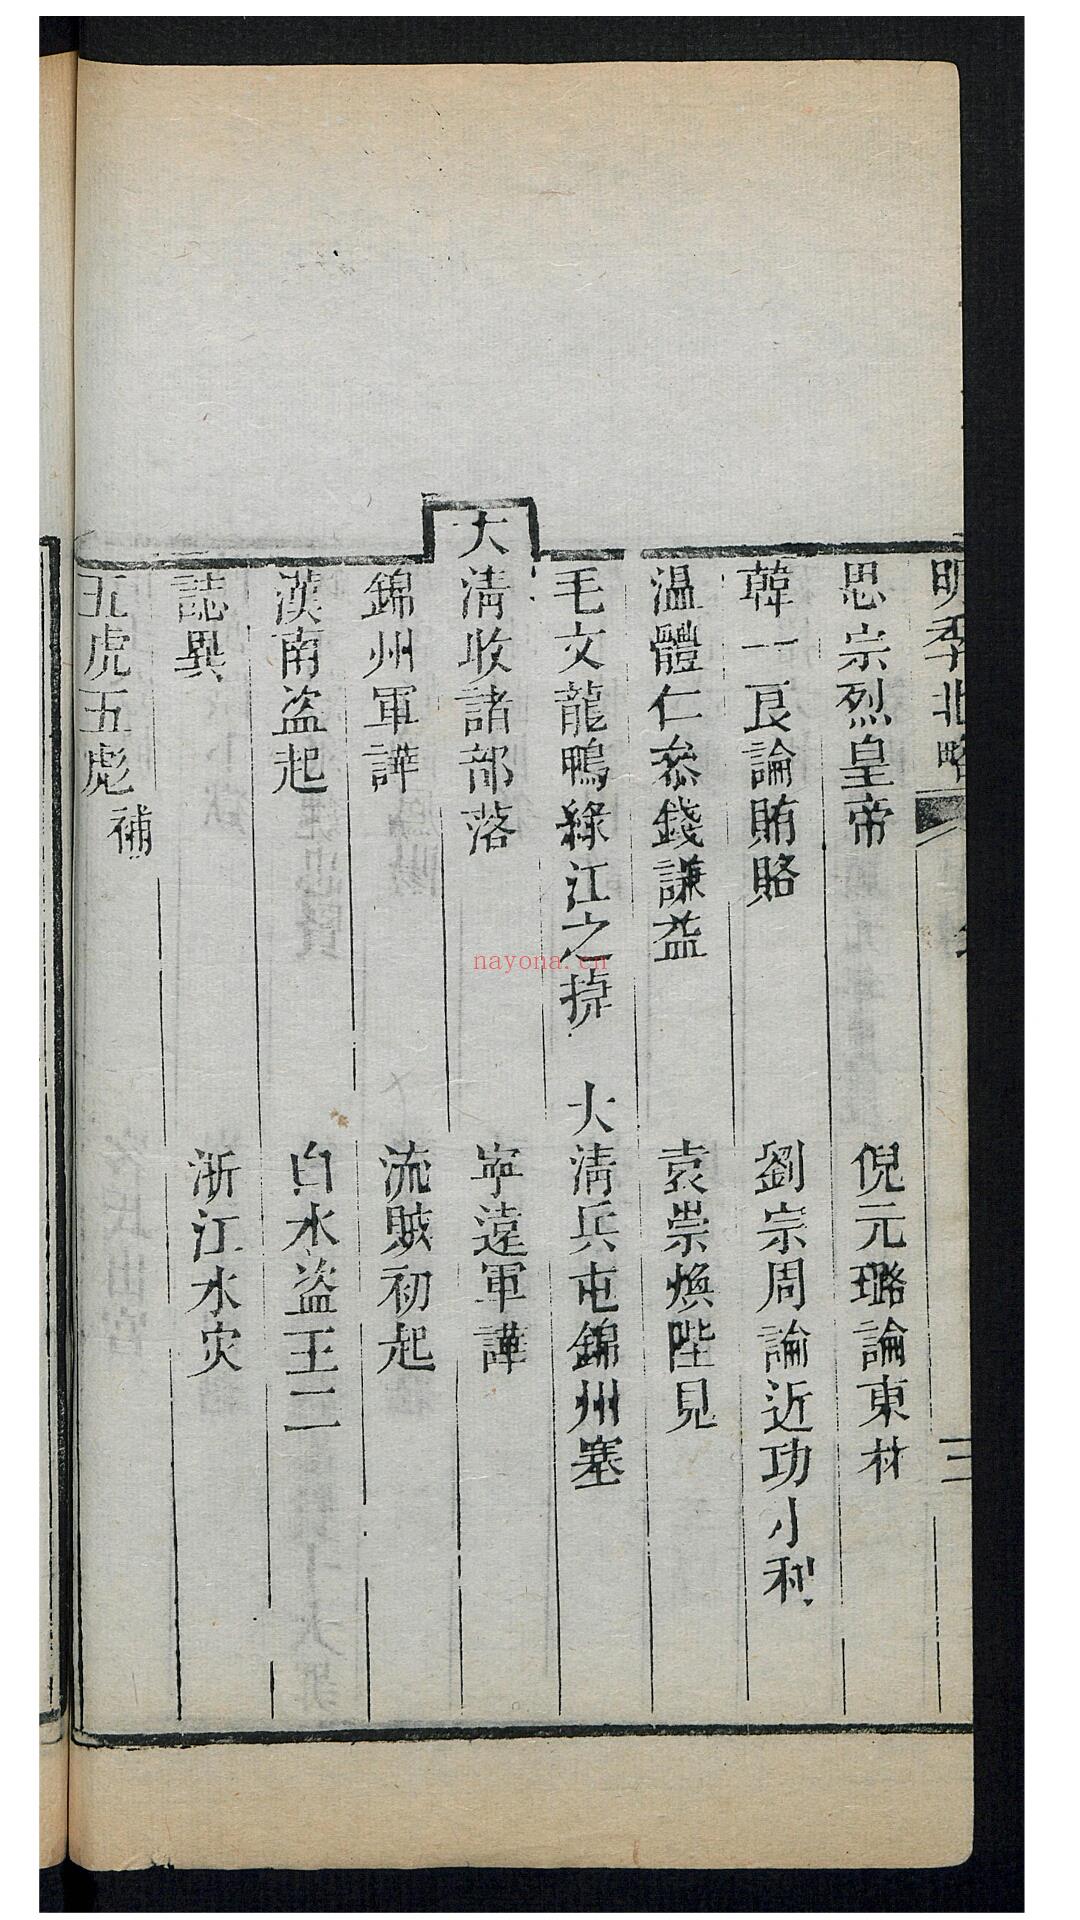 明季北略
三
思宗烈皇帝　倪元璐論東林
韓一良論賄賂　劉宗周論近功小利
温體仁叅錢謙益　袁崇煥陛見
毛文龍鴨綠江之捷　大清兵屯錦州塞
大清收諸部落　寧遠軍譁
錦州軍譁　流賊初起
漢南盜起　白水盜王二
誌異　浙江水灾
五虎五彪補
nayona.cn